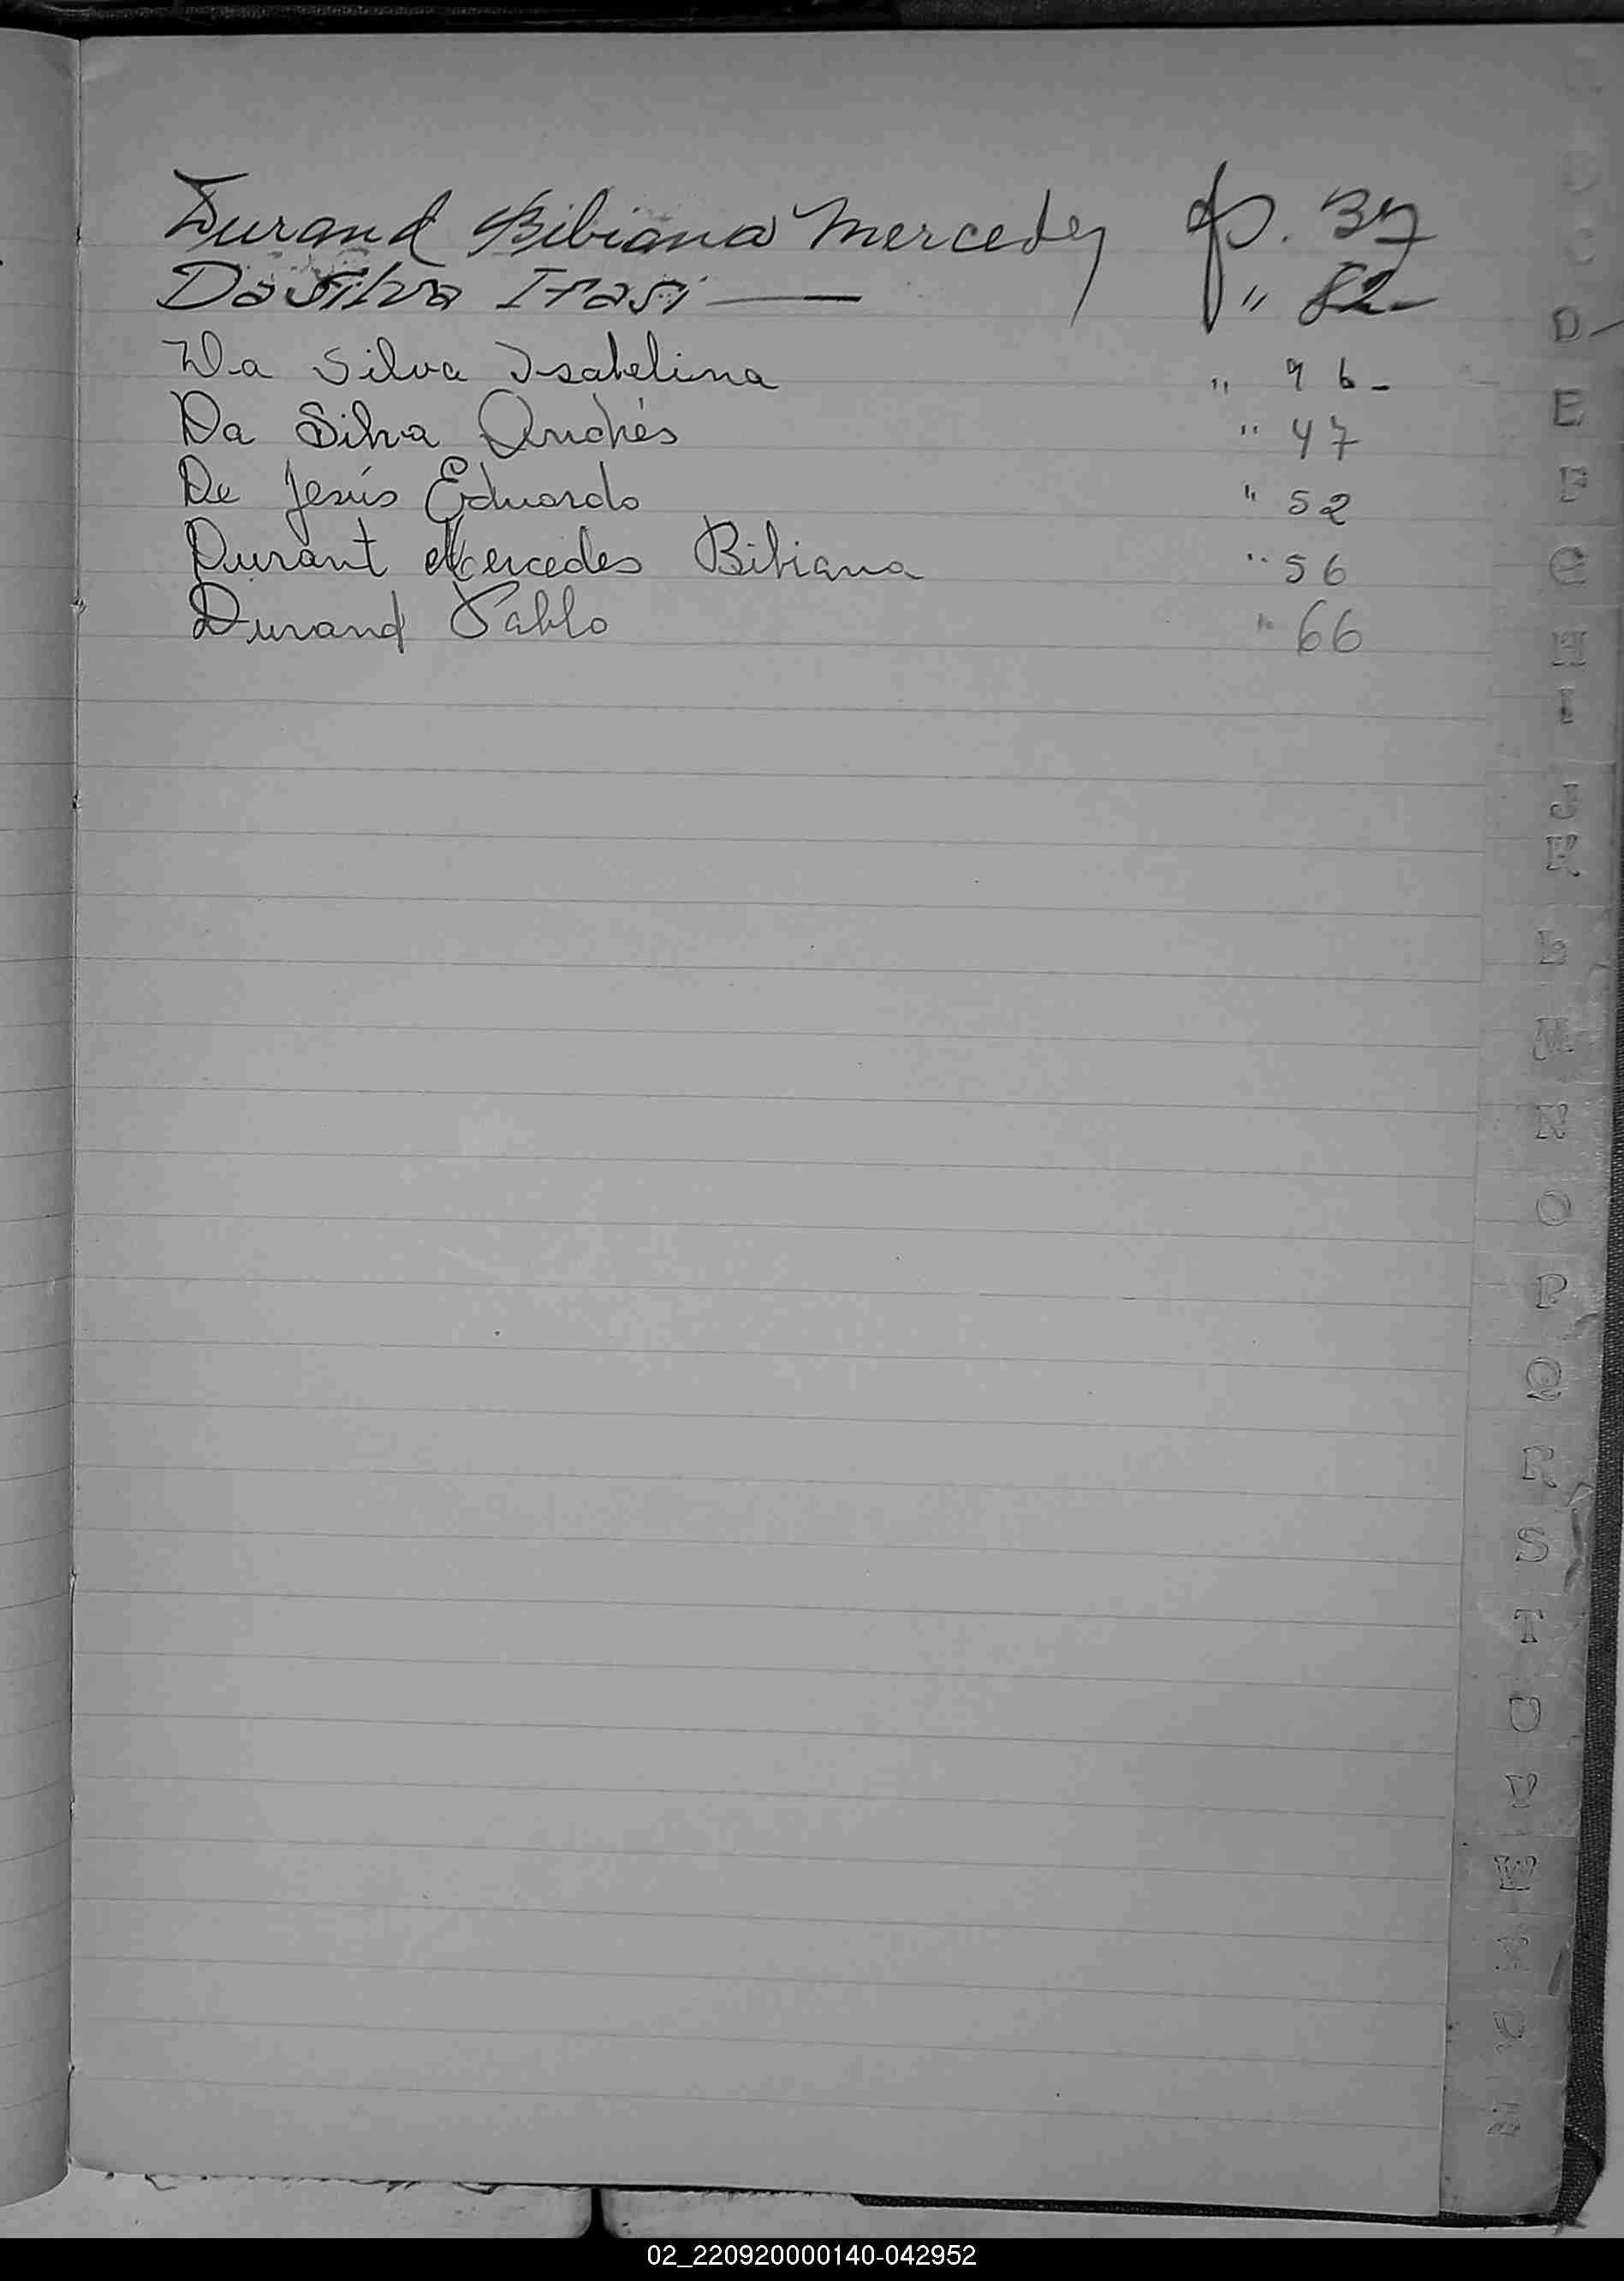 Durand Bibiana Mercedes fo. 37
Da Silva Itasi — " 82-
Da Silva Isabelina " 96-
Da Silva Andrés " 47
De Jesús Eduardo " 52
Durant Mercedes Bibiana " 56
Durand Pablo " 66
D
E
F
G
H
I
J
K
L
M
N
O
P
Q
R
S
T
U
V
W
X
Y
Z
02_220920000140-042952